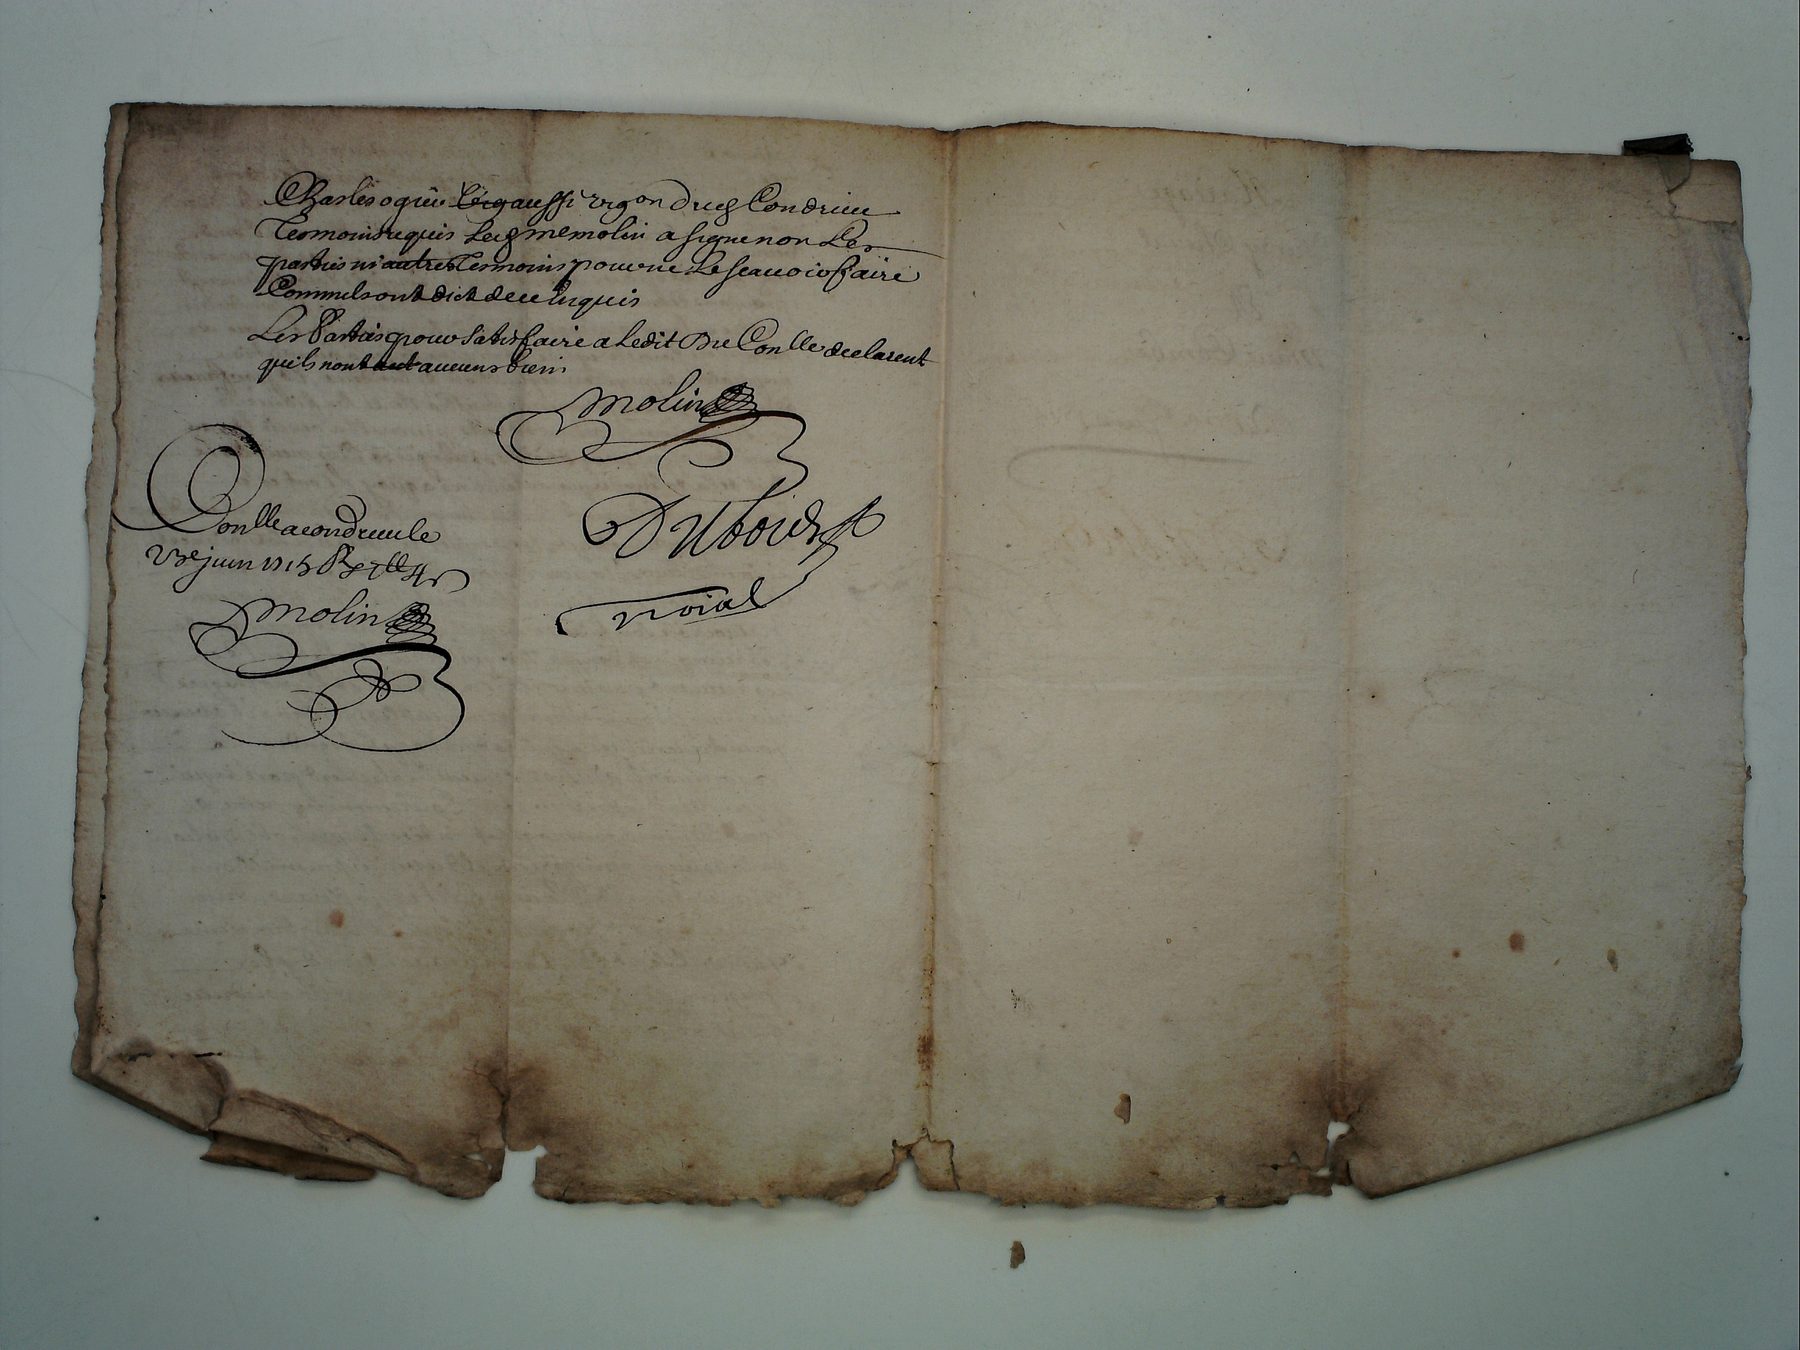 Charles oquin aussi vigon dud Condrieu
Tesmoins requis led me molin a signe non Les
parties ni autres Tesmoins pour ne Le scauoir faire
Commils ont dict de ce Enquis
Les Parties pour satisfaire a Ledit Du Conlle declarent
quils nont aucuns biens
molin
Dubouchet
noial
Conlle a condrieu le
juin 1715
molin